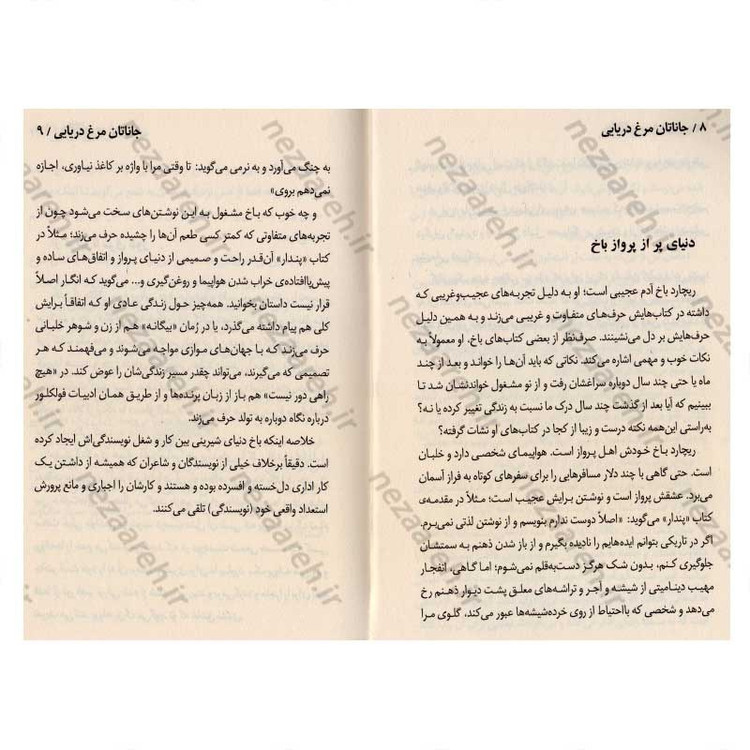 ۸ / جاناتان مرغ دریایی
دنیای پر از پرواز باخ
ریچارد باخ آدم عجیبی است؛ او به دلیل تجربه‌های عجیب‌وغریبی که
داشته در کتاب‌هایش حرف‌های متفاوت و غریبی می‌زند و به همین دلیل
حرف‌هایش بر دل می‌نشینند. صرف‌نظر از بعضی کتاب‌های باخ، او معمولاً به
نکات خوب و مهمی اشاره می‌کند. نکاتی که باید آن‌ها را خواند و بعد از چند
ماه یا حتی چند سال دوباره سراغشان رفت و از نو مشغول خواندنشان شد تا
ببینیم که آیا بعد از گذشت چند سال درک ما نسبت به زندگی تغییر کرده یا نه؟
به‌راستی این‌همه نکته درست و زیبا از کجا در کتاب‌های او نشات گرفته؟
ریچارد باخ خودش اهل پرواز است. هواپیمای شخصی دارد و خلبان
است. حتی گاهی با چند دلار مسافرهایی را برای سفرهای کوتاه به فراز آسمان
می‌برد. عشقش پرواز است و نوشتن برایش عجیب است؛ مثلاً در مقدمه‌ی
کتاب «پندار» می‌گوید: «اصلاً دوست ندارم بنویسم و از نوشتن لذتی نمی‌برم.
اگر در تاریکی بتوانم ایده‌هایم را نادیده بگیرم و از باز شدن ذهنم به سمتشان
جلوگیری کنم، بدون شک هرگز دست‌به‌قلم نمی‌شوم؛ اما گاهی، انفجار
مهیب دینامیتی از شیشه و آجر و تراشه‌های معلق پشت دیوار ذهنم رخ
می‌دهد و شخصی که بااحتیاط از روی خرده‌شیشه‌ها عبور می‌کند، گلوی مرا
جاناتان مرغ دریایی / ۹
به چنگ می‌آورد و به نرمی می‌گوید: تا وقتی مرا با واژه بر کاغذ نیاوری، اجازه
نمی‌دهم بروی»
و چه خوب که باخ مشغول به این نوشتن‌های سخت می‌شود چون از
تجربه‌های متفاوتی که کمتر کسی طعم آن‌ها را چشیده حرف می‌زند؛ مثلاً در
کتاب «پندار» آن‌قدر راحت و صمیمی از دنیای پرواز و اتفاق‌های ساده و
پیش‌پاافتاده‌ی خراب شدن هواپیما و روغن‌گیری و... می‌گوید که انگار اصلاً
قرار نیست داستان بخوانید. همه‌چیز حول زندگی عادی او که اتفاقاً برایش
کلی هم پیام داشته می‌گذرد، یا در رُمان «بیگانه» هم از زن و شوهر خلبانی
حرف می‌زند که با جهان‌های موازی مواجه می‌شوند و می‌فهمند که هر
تصمیمی که می‌گیرند، می‌تواند چقدر مسیر زندگی‌شان را عوض کند. در «هیچ
راهی دور نیست» هم باز از زبان پرنده‌ها و از طریق همان ادبیات فولکلور
درباره نگاه دوباره به تولد حرف می‌زند.
خلاصه اینکه باخ دنیای شیرینی بین کار و شغل نویسندگی‌اش ایجاد کرده
است. دقیقاً برخلاف خیلی از نویسندگان و شاعران که همیشه از داشتن یک
کار اداری دل‌خسته و افسرده بوده و هستند و کارشان را اجباری و مانع پرورش
استعداد واقعی خود (نویسندگی) تلقی می‌کنند.
nezaareh.ir